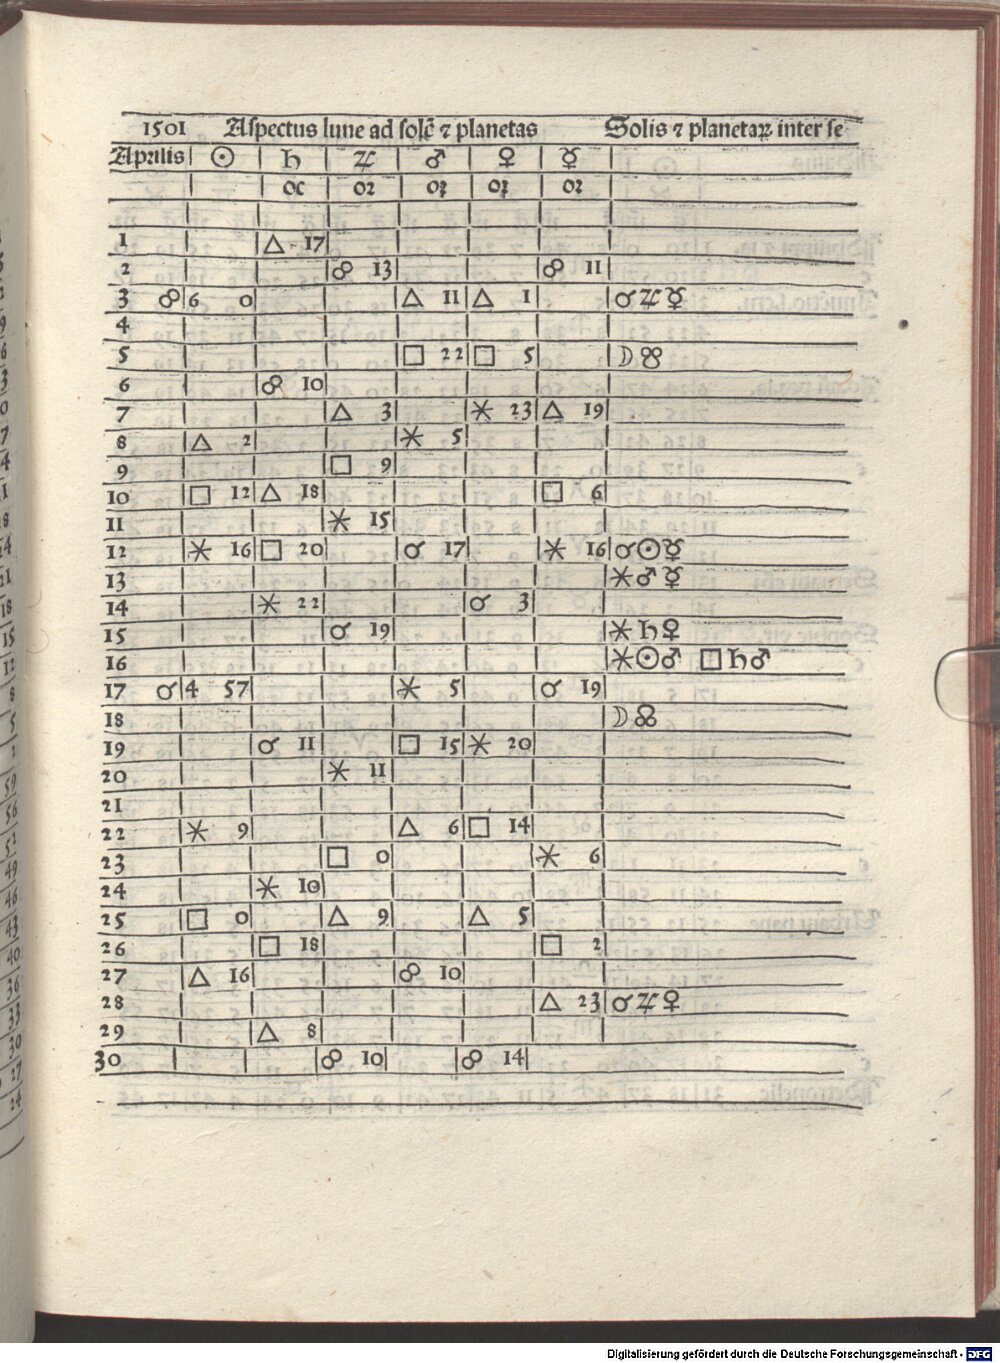 1501 Aspectus lune ad solē ⁊ planetas Solis ⁊ planetaꝝ inter se
Aprilis ☉ ♄ ♃ ♂ ♀ ☿
oc oꝛ oꝛ oꝛ
1 △ 17
2 ☍ 13 ☍ 11
3 ☍ 6 0 △ 11 △ 1 ☌ ♃ ☿
4
5 □ 22 □ 5 ☽ ☋
6 ☍ 10
7 △ 3 ⚹ 23 △ 19
8 △ 2 ⚹ 5
9 □ 9
10 □ 12 △ 18 □ 6
11 ⚹ 15
12 ⚹ 16 □ 20 ☌ 17 ⚹ 16 ☌ ☉ ☿
13 ⚹ ♂ ☿
14 ⚹ 22 ☌ 3
15 ☌ 19 ⚹ ♄ ♀
16 ⚹ ☉ ♂ □ ♄ ♂
17 ☌ 4 57 ⚹ 5 ☌ 19
18 ☽ ☊
19 ☌ 11 □ 15 ⚹ 20
20 ⚹ 11
21
22 ⚹ 9 △ 6 □ 14
23 □ 0 ⚹ 6
24 ⚹ 10
25 □ 0 △ 9 △ 5
26 □ 18 □ 2
27 △ 16 ☍ 10
28 △ 23 ☌ ♃ ♀
29 △ 8
30 ☍ 10 ☍ 14
Digitalisierung gefördert durch die Deutsche Forschungsgemeinschaft - DFG